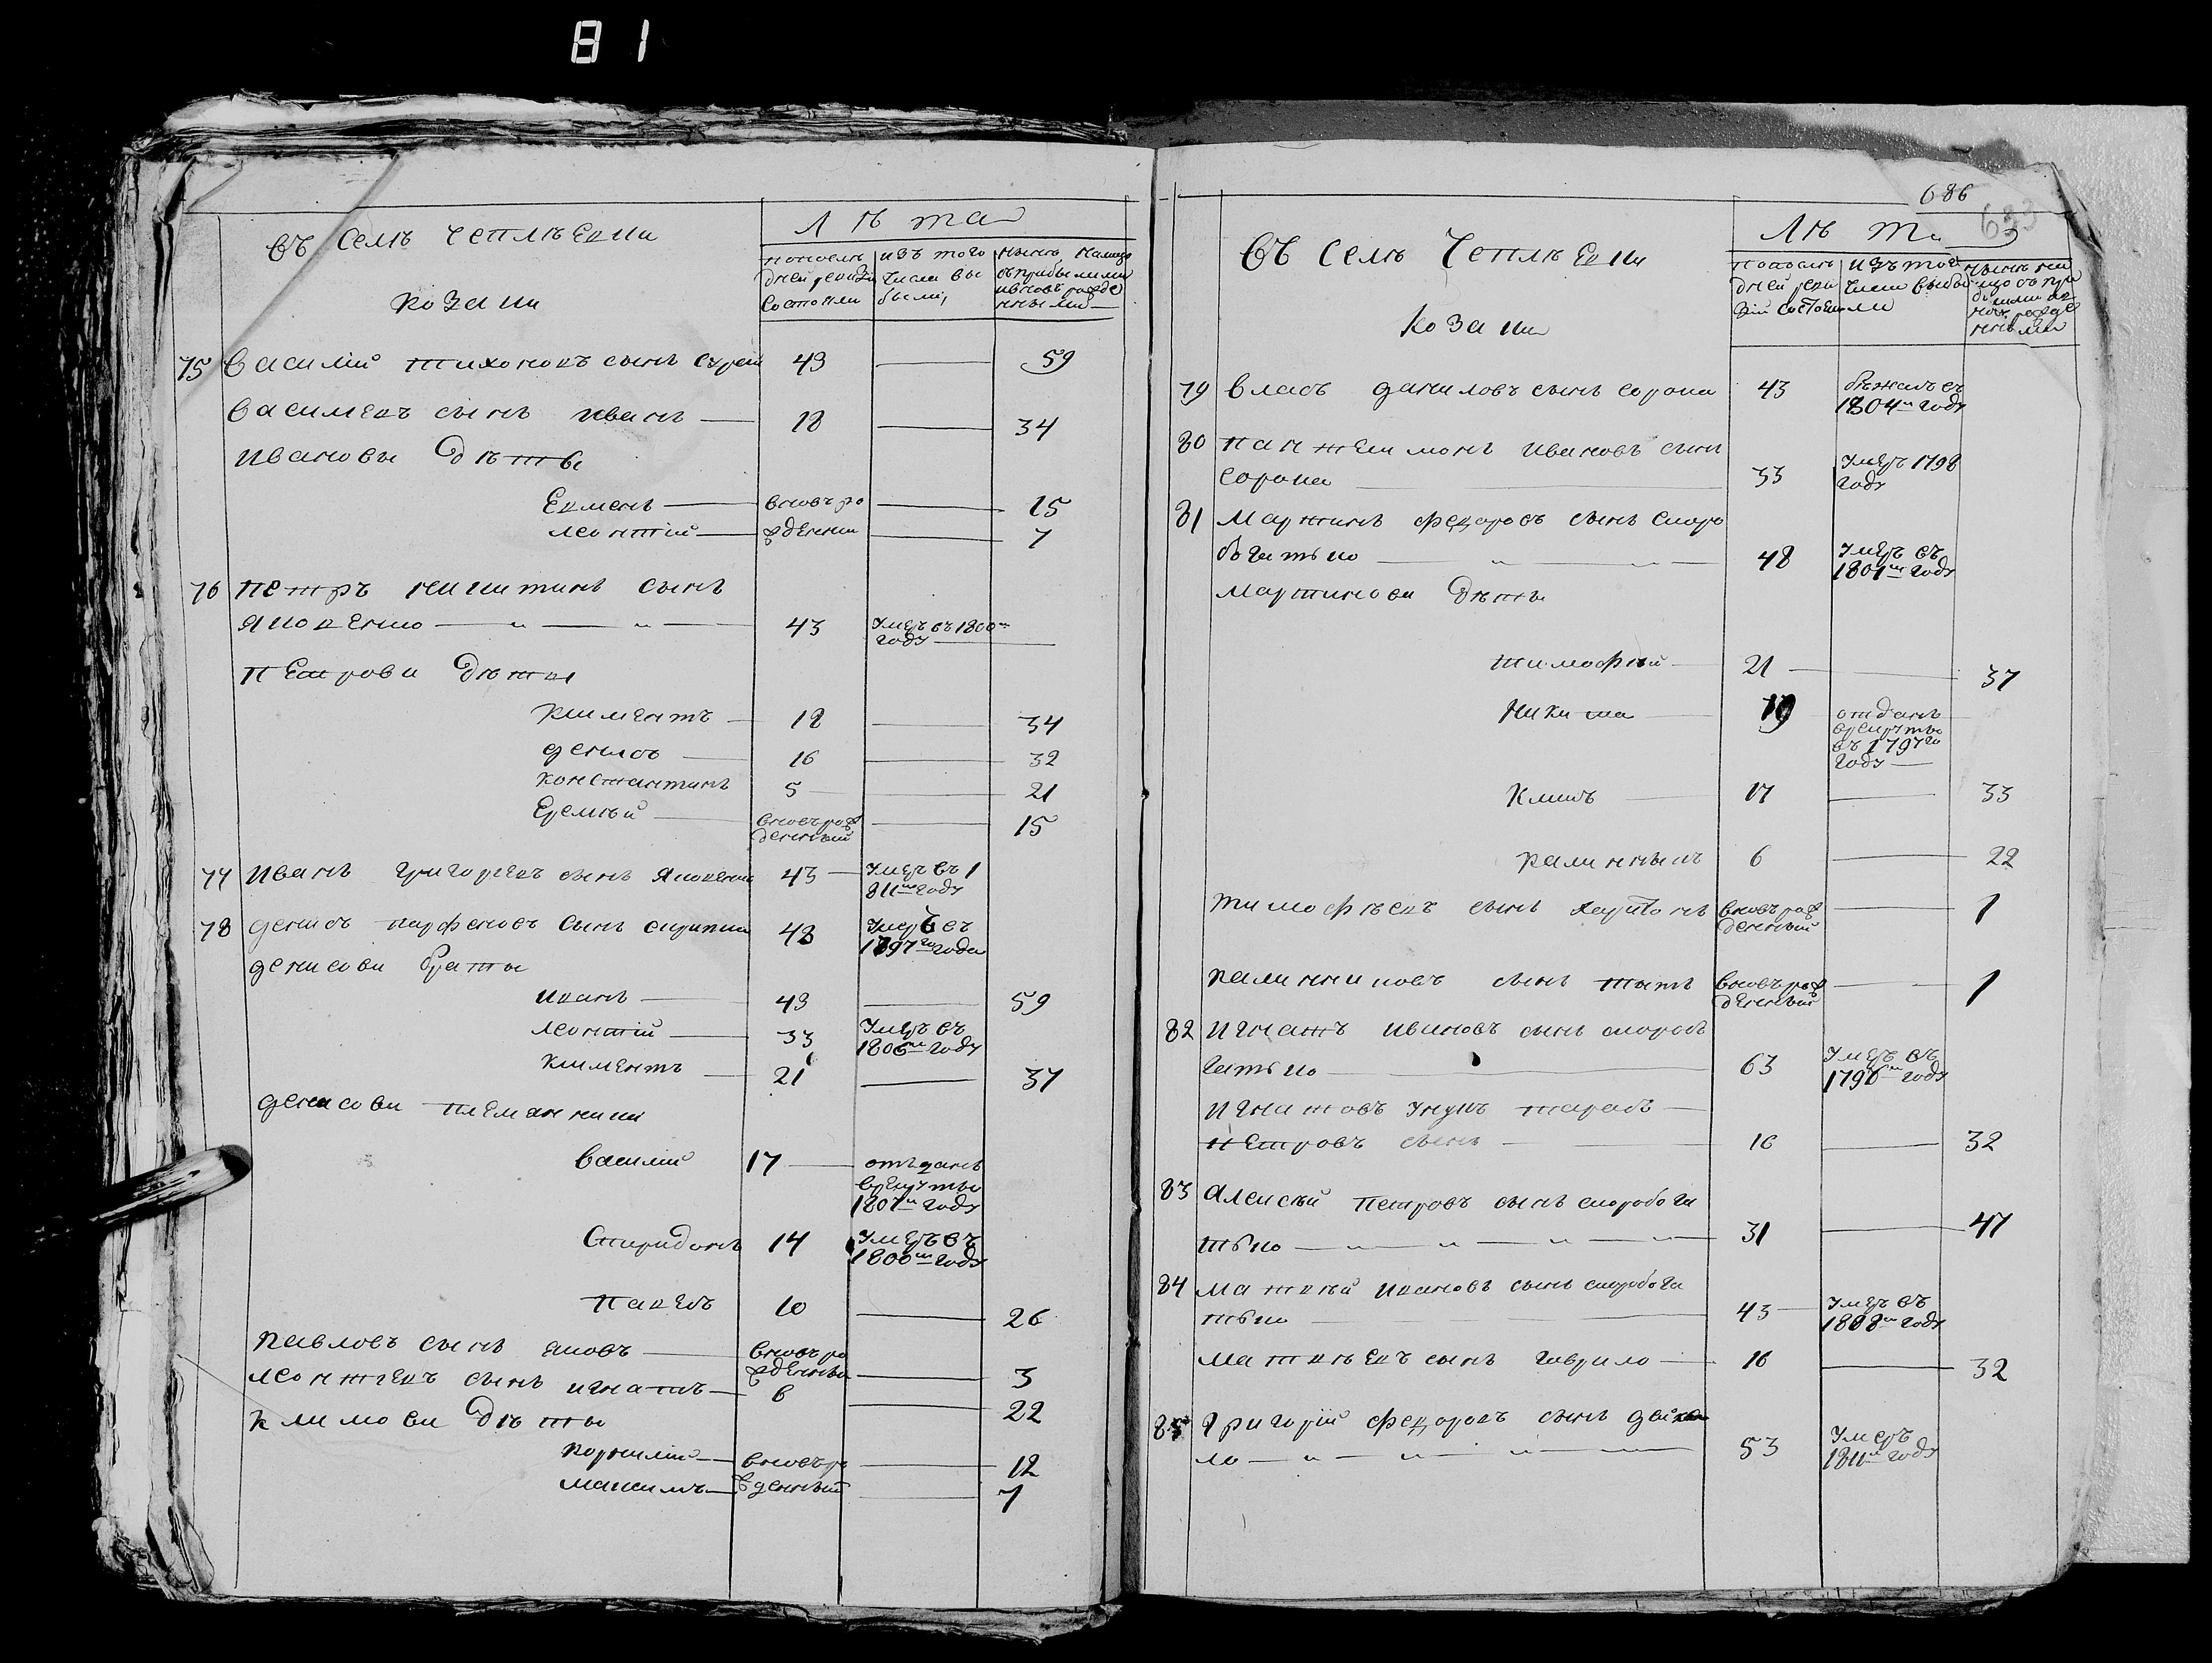 81
въ Селѣ Чеплѣевки
козаки
Лѣта
попослѣ
дней ревизіи
состояли
изъ того
числа вы
были,
нынѣ налицо
съ прибылими
ивновь рожде
нными
75 Василій Тихоновъ сынъ 49 59
Васильевъ сынъ иванъ 18 34
ивановы дѣти
Евменъ вновъ ро 15
леонтій жденни 7
76 петръ никитинъ сынъ
Яковенко 43 Умеръ въ 1800м
году
петрови дѣти
климентъ 18 34
денисъ 16 32
константинъ 5 21
Еремѣй вновъ рож 15
денный
77 иванъ григорьевъ сынъ Яковенко 43 Умеръ въ 1
811м году
78 денисъ парфеновъ сынъ скрипка 48 Умеръ въ
1797го года
денисови браты
иванъ 43 59
леонтій 33 Умеръ въ
1806м году
климентъ 21 37
денисови племянники
василій 17 отъданъ
врекруты
1807м году
Спиридонъ 14 Умеръ въ
1800м году
павелъ 10 26
павловъ сынъ яковъ вновъ ро
жденны 3
леонтіевъ сынъ игнатъ 6 22
климови дѣти
корнилій вновъ ро 12
максимъ жденный 7
686
633
Въ селѣ Чеплѣевки
козаки
Лѣта
попослѣ
дней реви
зіи состояли
изъ того
числа выбы
ли
нынѣ нали
цо съ при
былими ив
новь рожде
нными
79 власъ даниловъ сынъ сорока 43 бѣжалъ въ
1804м году
80 пантелимонъ ивановъ сынъ
сорока 33 Умеръ 1798
году
81 мартинъ федоровъ сынъ скоро
богатько 48 Умеръ въ
1801м году
мартинови дѣти
тимофѣй 21 37
Никита 19 отданъ
врекруты
въ 1797го
году
Климъ 17 33
калинникъ 6 22
тимофѣевъ сынъ харитонъ вновъ рож 1
денный
калинниковъ сынъ титъ вновъ рож 1
денный
82 игнатъ ивановъ сынъ скоробо
гатько 63 Умеръ въ
1796м году
игнатовъ унукъ тарасъ
петровъ сынъ 16 32
83 алексѣй петровъ сынъ скоробога
тько 31 47
84 матвѣй ивановъ сынъ скоробога
тько 43 Умеръ въ
1808м году
матвѣевъ сынъ гаврило 16 32
85 григорій федоровъ сынъ
ло 53 Умеръ
1811м году